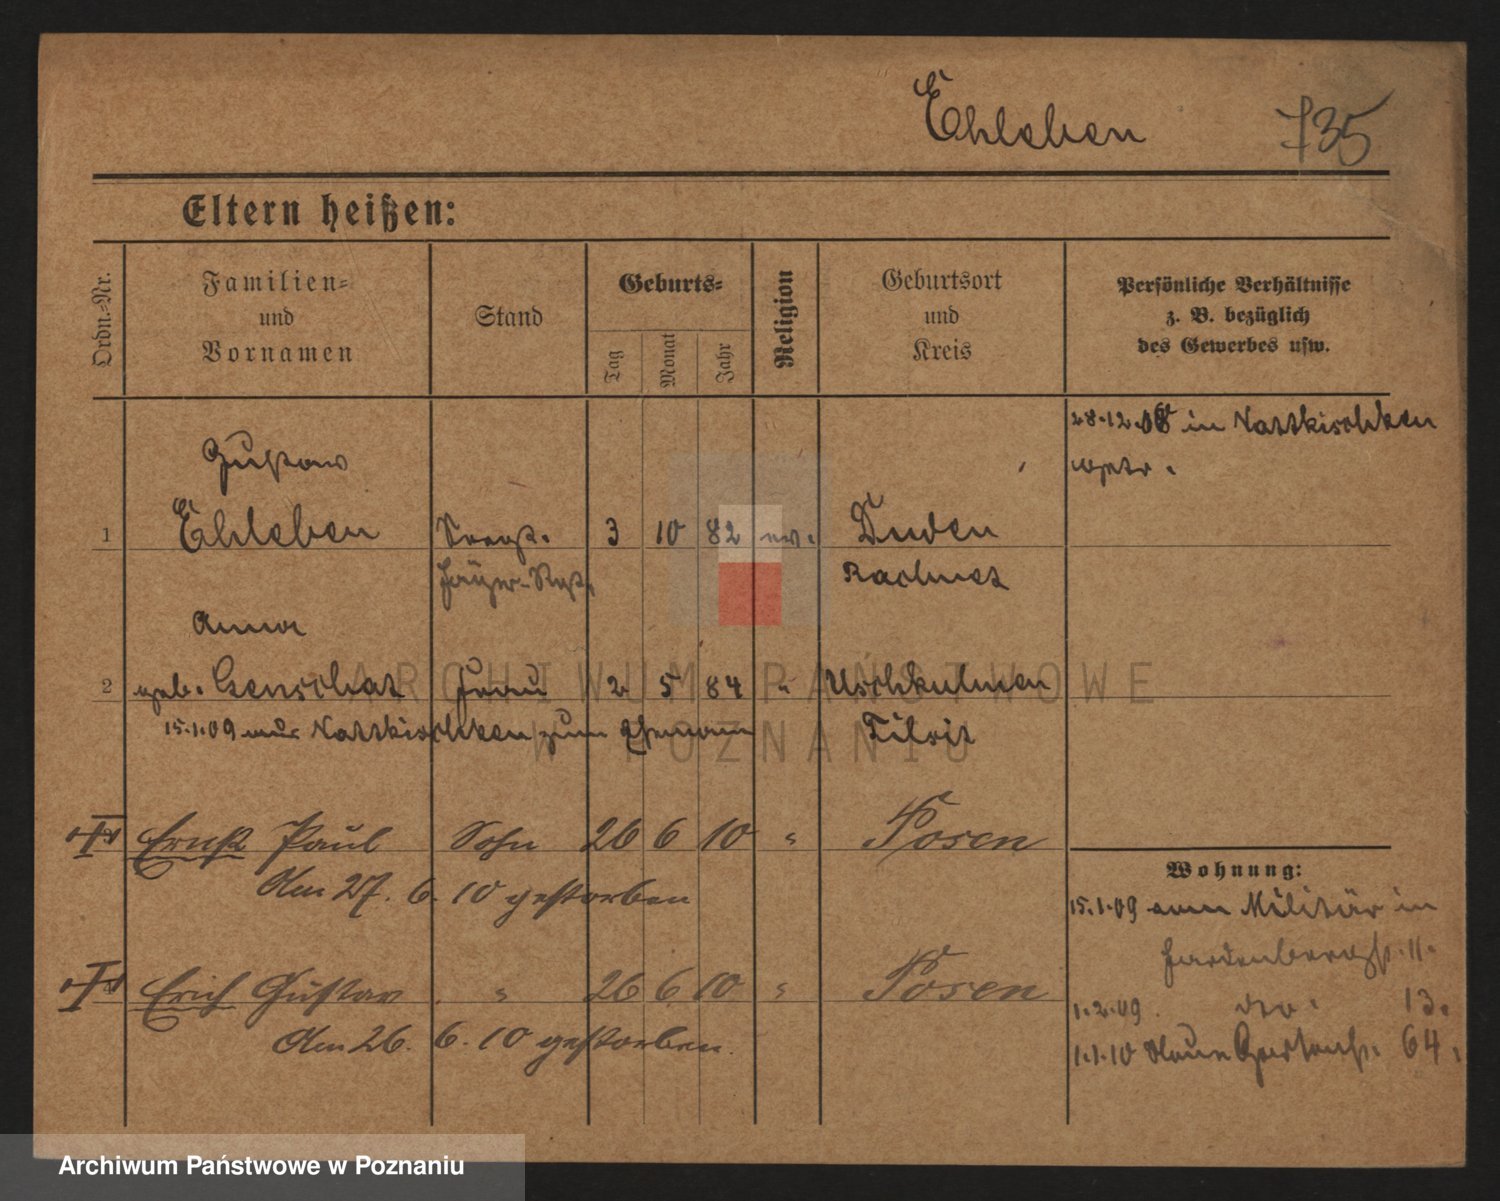 Ehleben 735
Eltern heißen:
Ordn.=Nr.
Familien=
und
Vornamen
Stand
Geburts=
Tag
Monat
Jahr
Religion
Geburtsort
und
Kreis
Persönliche Verhältnisse
z. B. bezüglich
des Gewerbes usw.
28.12.08 in Nattkischken
getr.
Gustav
1 Ehleben Sergt. 3 10 82 ev. Duden
Jäger-Regt.
Anna
2 geb. Genschat Frau 2 5 84 " Uschkulmen
15.1.09 aus Nattkischken zum Ehemann Tilsit
Ernst Paul Sohn 26 6 10 " Posen
Am 27. 6. 10 gestorben
Wohnung:
15.1.09 vom Militär in
Hardenbergst. 11.
Erich Gustav " 26 6 10 " Posen
Am 26. 6. 10 gestorben.
1.2.09. dto. 13.
1.1.10 Neue Gartenst. 64.
ARCHIWUM PAŃSTWOWE
W POZNANIU
Archiwum Państwowe w Poznaniu